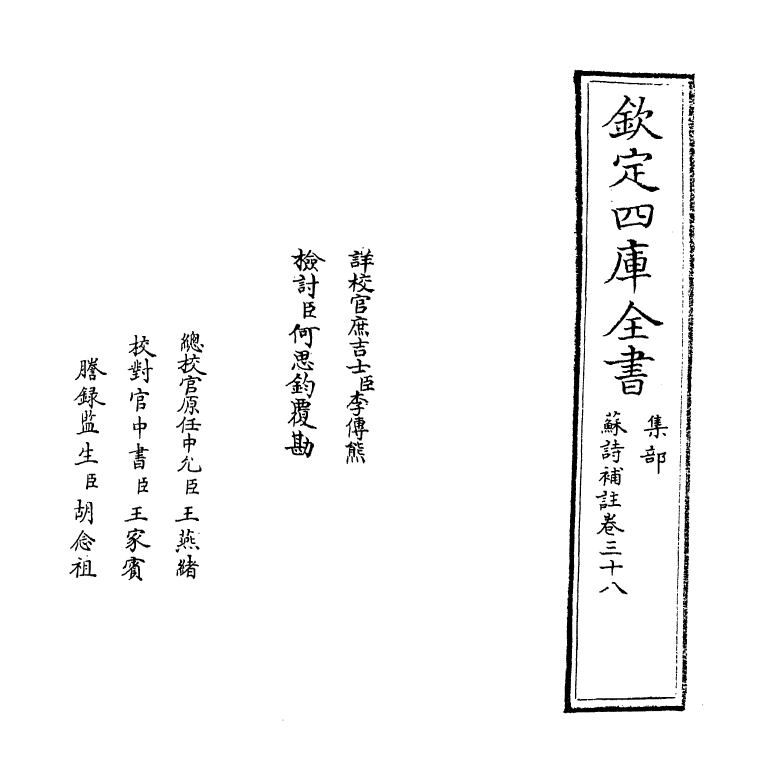 欽定四庫全書
集部
蘇詩補註卷三十八
詳校官庶吉士臣李傳熊
檢討臣何思鈞覆勘
總校官原任中允臣王燕緒
校對官中書臣王家賓
謄錄監生臣胡念祖